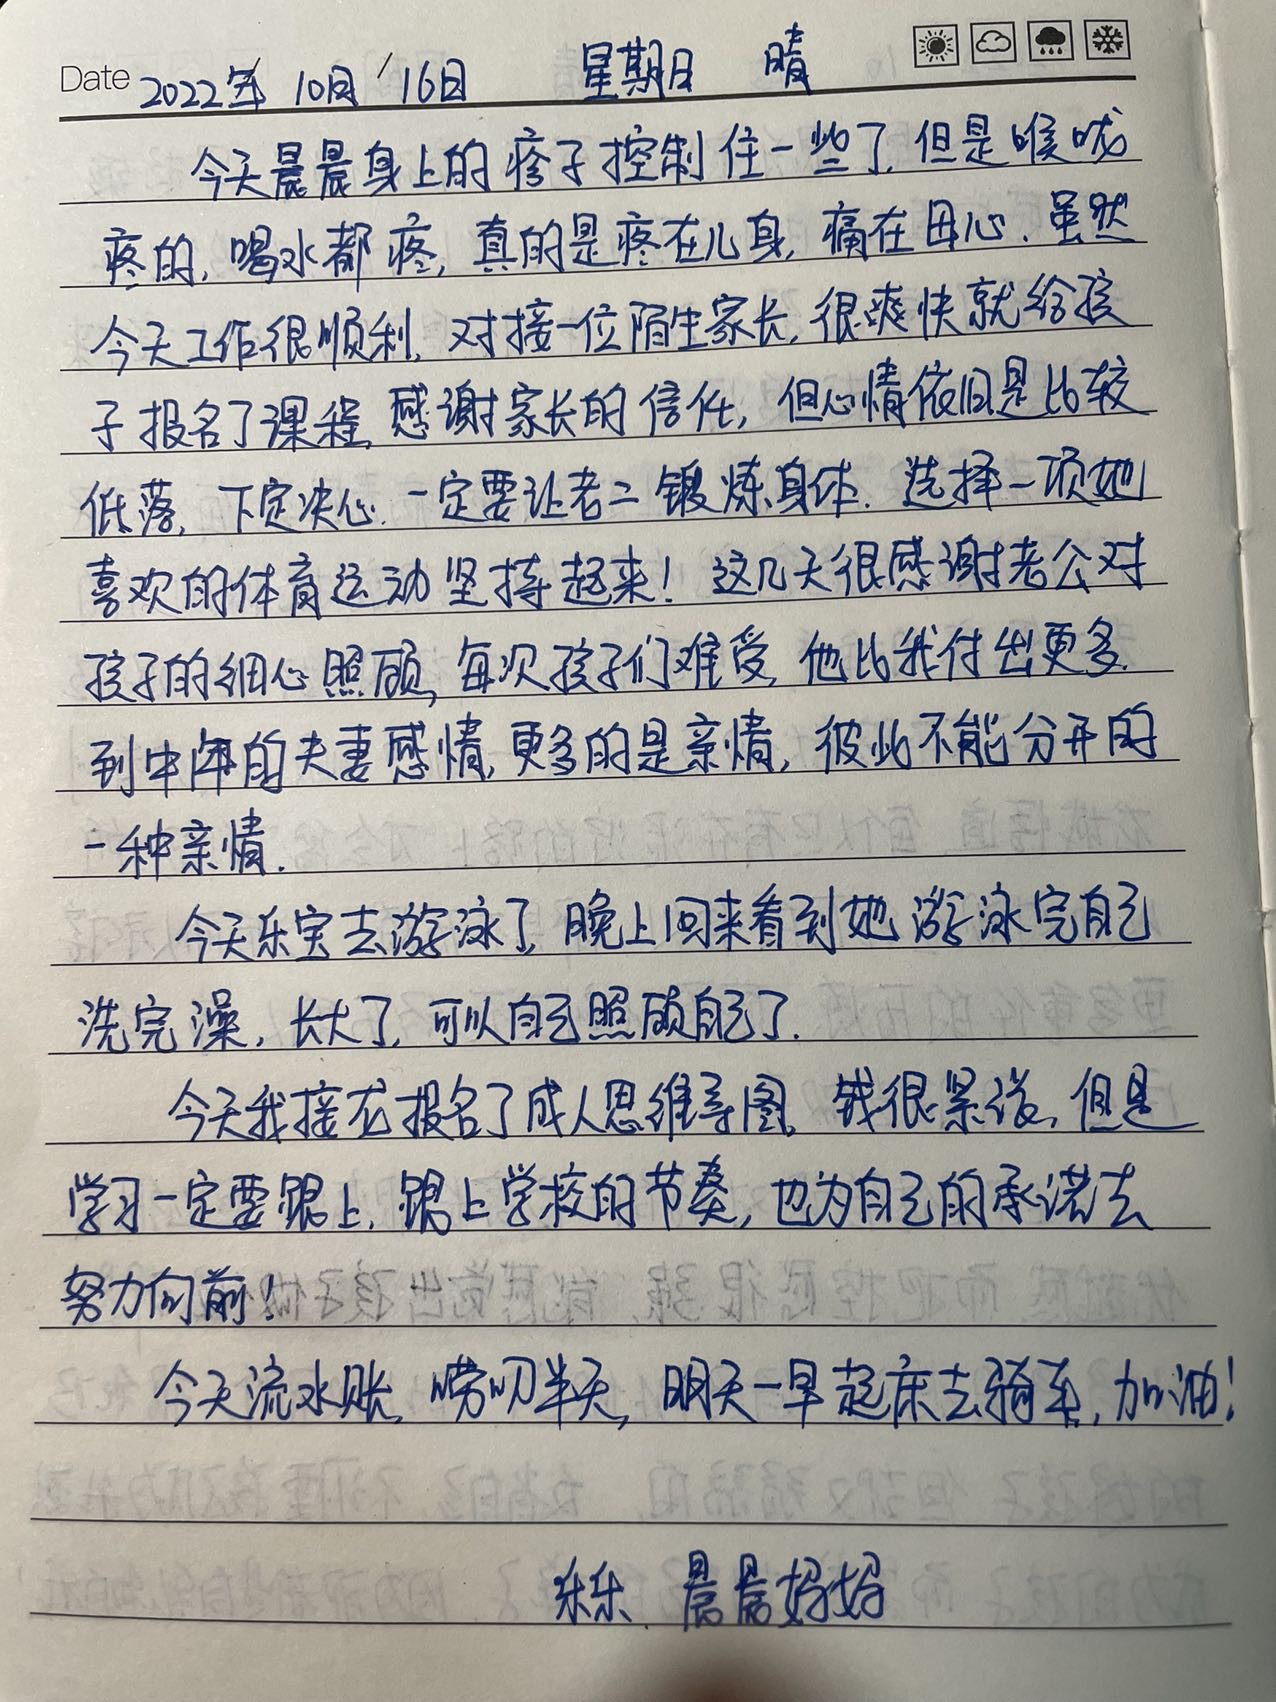 Date 2022年 10月 16日 星期日 晴
今天晨晨身上的疹子控制住一些了,但是喉咙
疼的,喝水都疼,真的是疼在儿身,痛在母心.虽然
今天工作很顺利,对接一位陌生家长,很爽快就给孩
子报名了课程,感谢家长的信任,但心情依旧是比较
低落,下定决心.一定要让老二锻炼身体.选择一项她
喜欢的体育运动坚持起来!这几天很感谢老公对
孩子的细心照顾,每次孩子们难受,他比我付出更多.
到中年的夫妻感情,更多的是亲情,彼此不能分开的
一种亲情.
今天乐宝去游泳了,晚上回来看到她游泳完自己
洗完澡,长大了,可以自己照顾自己了.
今天我接龙报名了成人思维导图,钱很紧张,但是
学习一定要跟上,跟上学校的节奏,也为自己的承诺去
努力向前!
今天流水账,唠叨半天,明天一早起床去骑车,加油!
乐乐、晨晨妈妈